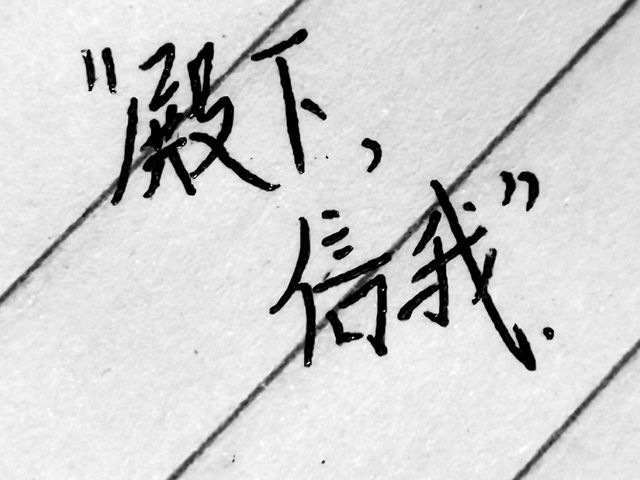 “殿下，
信我”.